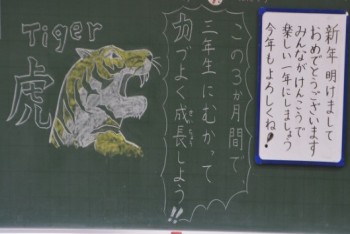 Tiger
虎
この3か月間で
三年生にむかって
力づよく成長しよう!!
せいちょう
新年 明けまして
おめでとうございます
みんながけんこうで
楽しい一年にしましょう
今年もよろしくね!